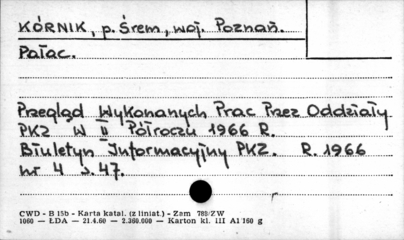 KÓRNIK, p. Śrem, woj. Poznań.
Pałac.
Przegląd Wykonanych Prac Przez Oddziały
PKZ W II Półroczu 1966 R.
Biuletyn Informacyjny PKZ. R. 1966
nr 4 s. 47.
CWD - B 15b - Karta katal. (z liniat.) - Zam 783/ZW
1060 — ŁDA — 21.4.60 — 2.360.000 — Karton kl. III A1 160 g